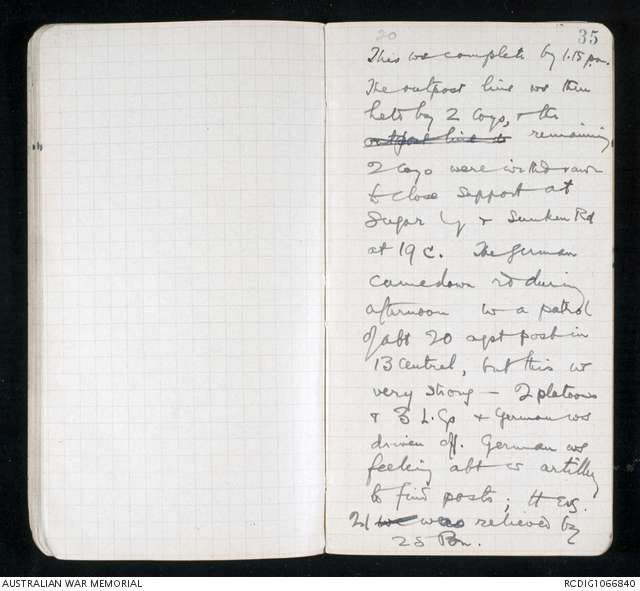 20
35
This ws complete by 1.15 p.m.
The outpost line ws then
held by 2 Coys, & the
outpost line to remaining
2 coys were withdrawn
to close support at
Sugar & Sunken Rd
at 19 c. The German
came down rd during
afternoon w a patrol
of abt 20 agst post in
13 Central, but this ws
very strong - 2 platoons
& 3 L. Gs & German ws
driven off. German ws
feeling abt w artilly
to find posts;
21 we was relieved by
28 Bn.
AUSTRALIAN WAR MEMORIAL
RCDIG1066840